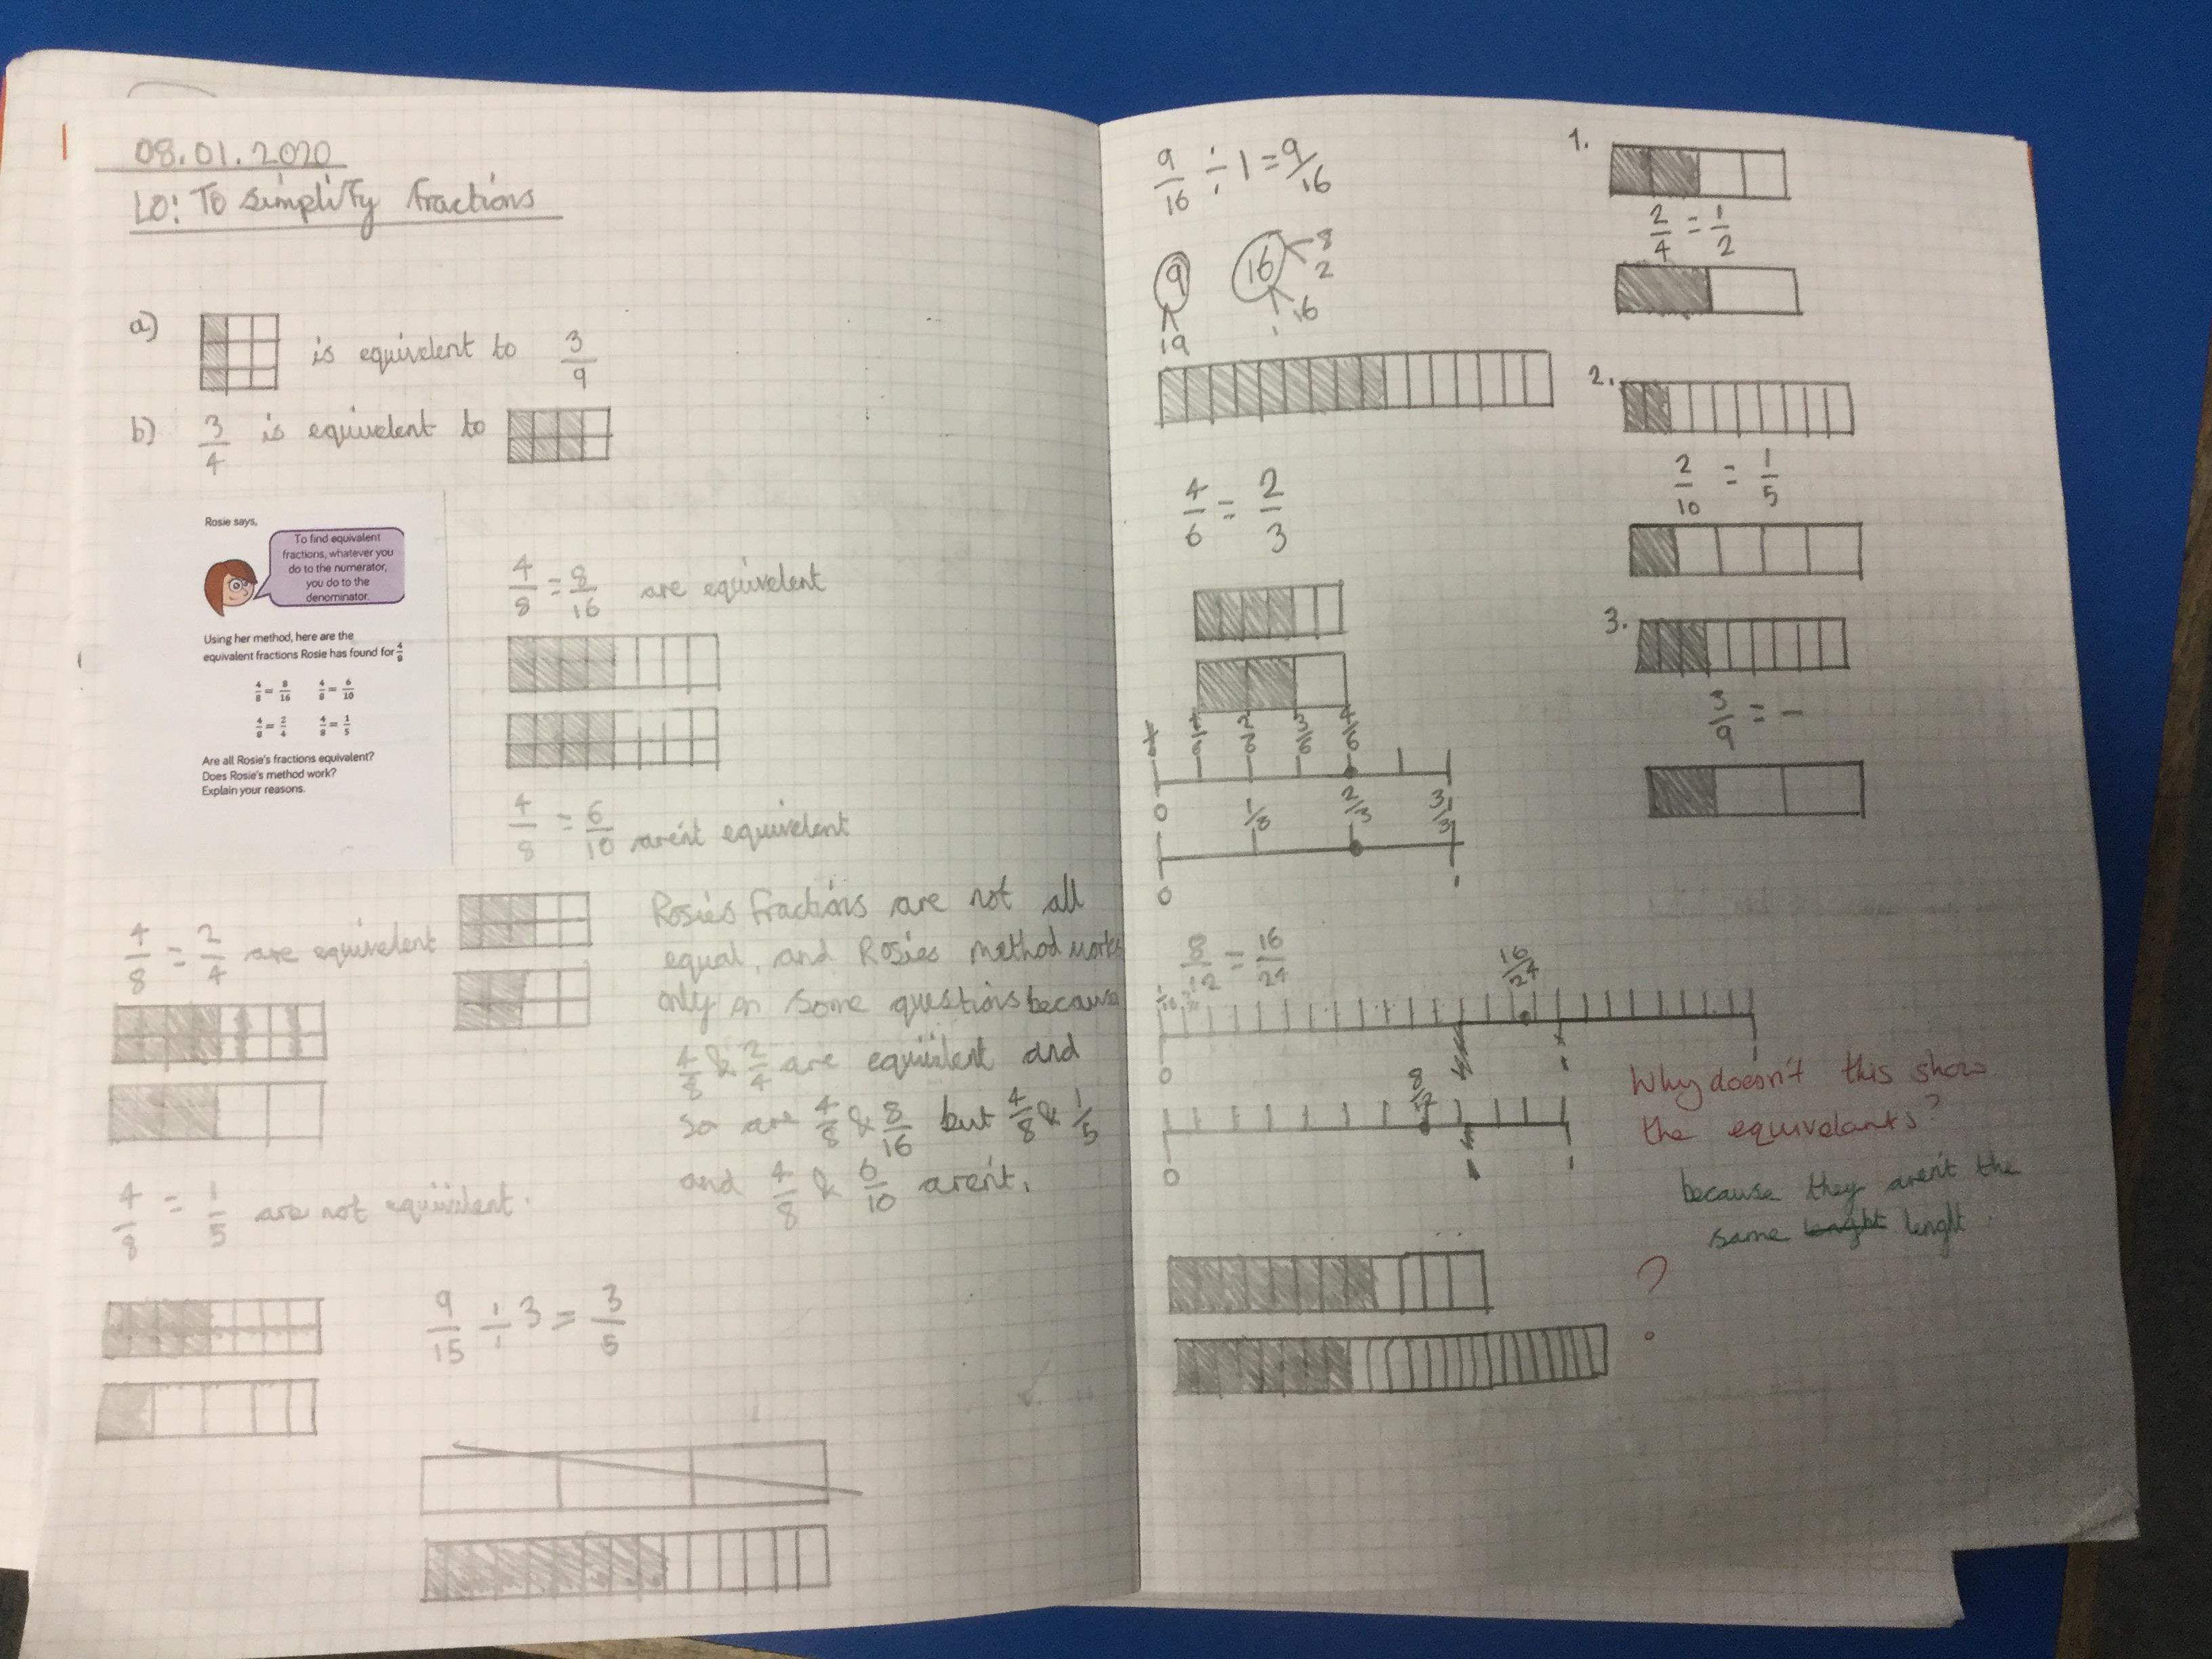 08.01.2020
LO: To simplify fractions
a) is equivelent to 3/9
b) 3/4 is equivelent to
Rosie says,
To find equivalent
fractions, whatever you
do to the numerator,
you do to the
denominator.
Using her method, here are the
equivalent fractions Rosie has found for 4/8
4/8 = 8/16 4/8 = 6/10
4/8 = 2/4 4/8 = 1/5
Are all Rosie's fractions equivalent?
Does Rosie's method work?
Explain your reasons.
4/8 = 8/16 are equivelent
4/8 = 6/10 aren't equivelent
4/8 = 2/4 are equivelent
Rosie's fractions are not all
equal, and Rosies method works
only on some questions because
4/8 & 2/4 are equivilent and
so are 4/8 & 8/16 but 4/8 & 1/5
and 4/8 & 6/10 aren't.
4/8 = 1/5 are not equivilent.
9/15 ÷ 3 = 3/5
9/16 ÷ 1 = 9/16
9 16 8
2
1 16
19
4/6 = 2/3
2/6 3/6 4/6
0 1/3 2/3 3/3
0
8/12 = 16/24
16/24
0 1
8/12
0 1
1.
2/4 = 1/2
2.
2/10 = 1/5
3.
3/9 = -
Why doesn't this show
the equivelants?
because they aren't the
same lenght
?